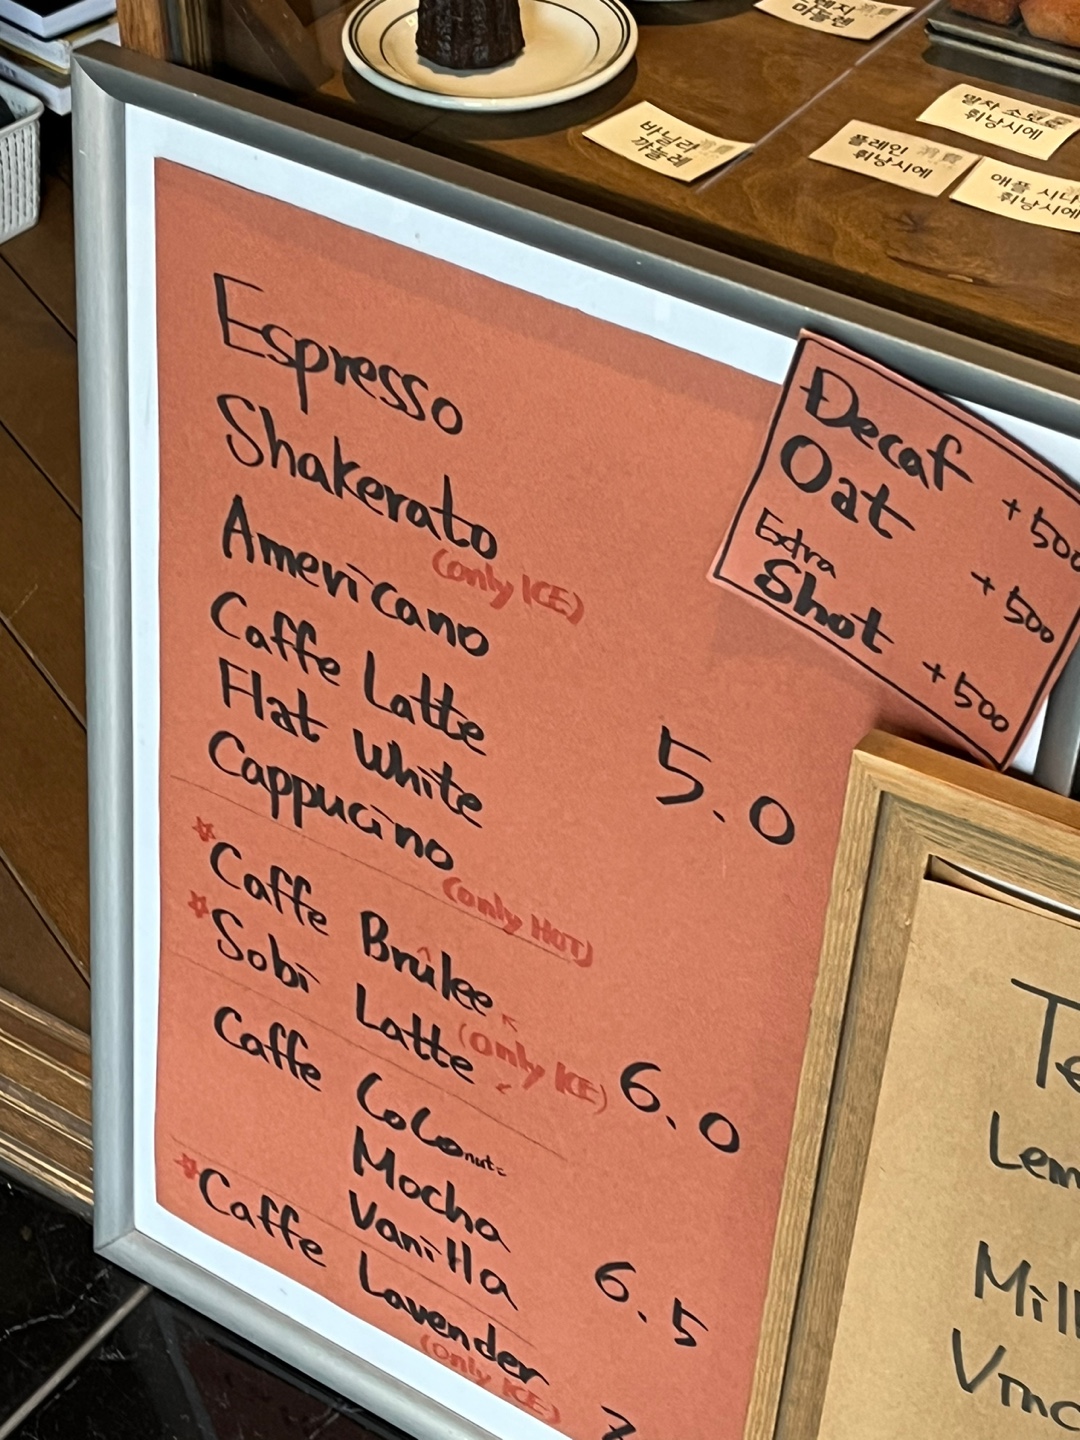 마들렌
바닐라
까눌레
말차 소보로
휘낭시에
플레인
휘낭시에
애플 시나
휘낭시에
Espresso
Shakerato
(only ICE)
Americano
Caffe Latte
Flat White
Cappucino
(only HOT)
5.0
Caffe Brûlee
Sobi Latte
(only ICE)
6.0
Caffe Coconut
Mocha
Vanilla
6.5
Caffe Lavender
(only ICE)
7
Decaf +500
Oat +500
Extra
Shot +500
Te
Lem
Mil